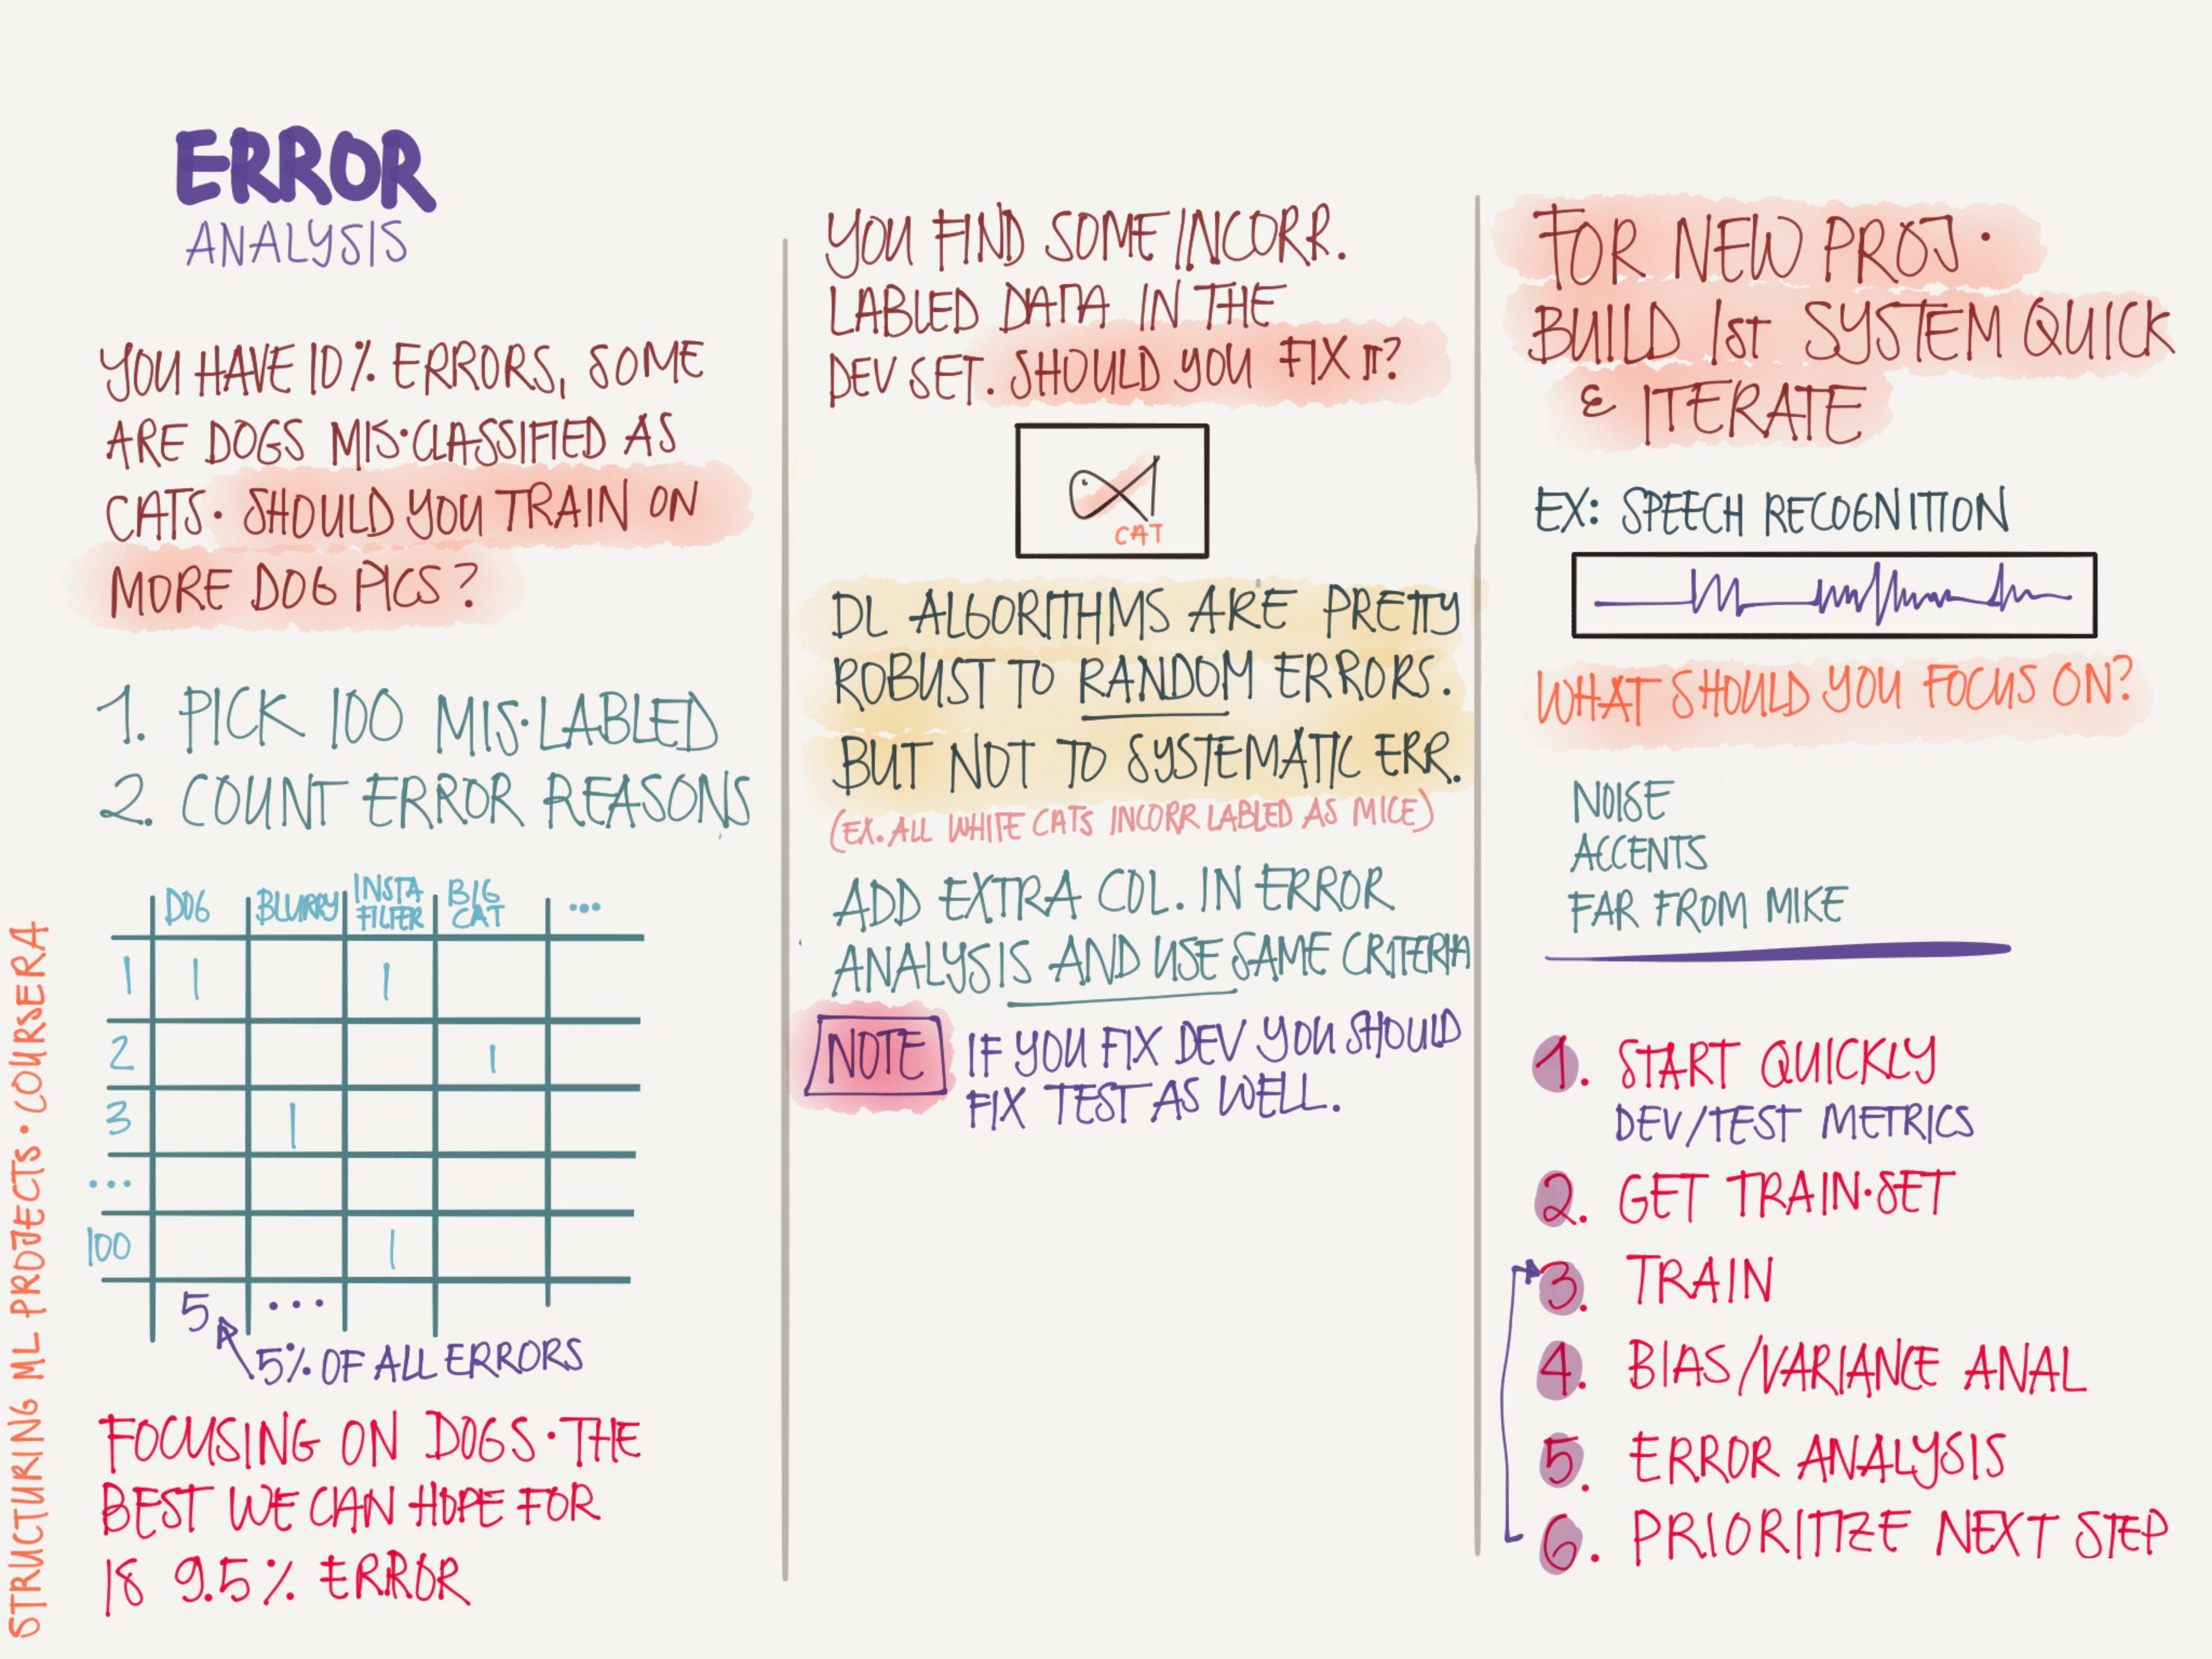 ERROR
ANALYSIS
YOU HAVE 10% ERRORS, SOME
ARE DOGS MIS·CLASSIFIED AS
CATS· SHOULD YOU TRAIN ON
MORE DOG PICS?
1. PICK 100 MIS·LABLED
2. COUNT ERROR REASONS
DOG BLURRY INSTA FILTER BIG CAT ...
1 1 1
2 1
3 1
...
100 1
5 ...
5% OF ALL ERRORS
FOCUSING ON DOGS·THE
BEST WE CAN HOPE FOR
IS 9.5% ERROR
STRUCTURING ML PROJECTS·COURSERA
YOU FIND SOME INCORR.
LABLED DATA IN THE
DEV SET. SHOULD YOU FIX IT?
CAT
DL ALGORITHMS ARE PRETTY
ROBUST TO RANDOM ERRORS.
BUT NOT TO SYSTEMATIC ERR.
(EX. ALL WHITE CATS INCORR LABLED AS MICE)
ADD EXTRA COL. IN ERROR
ANALYSIS AND USE SAME CRITERIA
NOTE IF YOU FIX DEV YOU SHOULD
FIX TEST AS WELL.
FOR NEW PROJ.
BUILD 1st SYSTEM QUICK
& ITERATE
EX: SPEECH RECOGNITION
WHAT SHOULD YOU FOCUS ON?
NOISE
ACCENTS
FAR FROM MIKE
1. START QUICKLY
DEV/TEST METRICS
2. GET TRAIN·SET
3. TRAIN
4. BIAS/VARIANCE ANAL
5. ERROR ANALYSIS
6. PRIORITIZE NEXT STEP